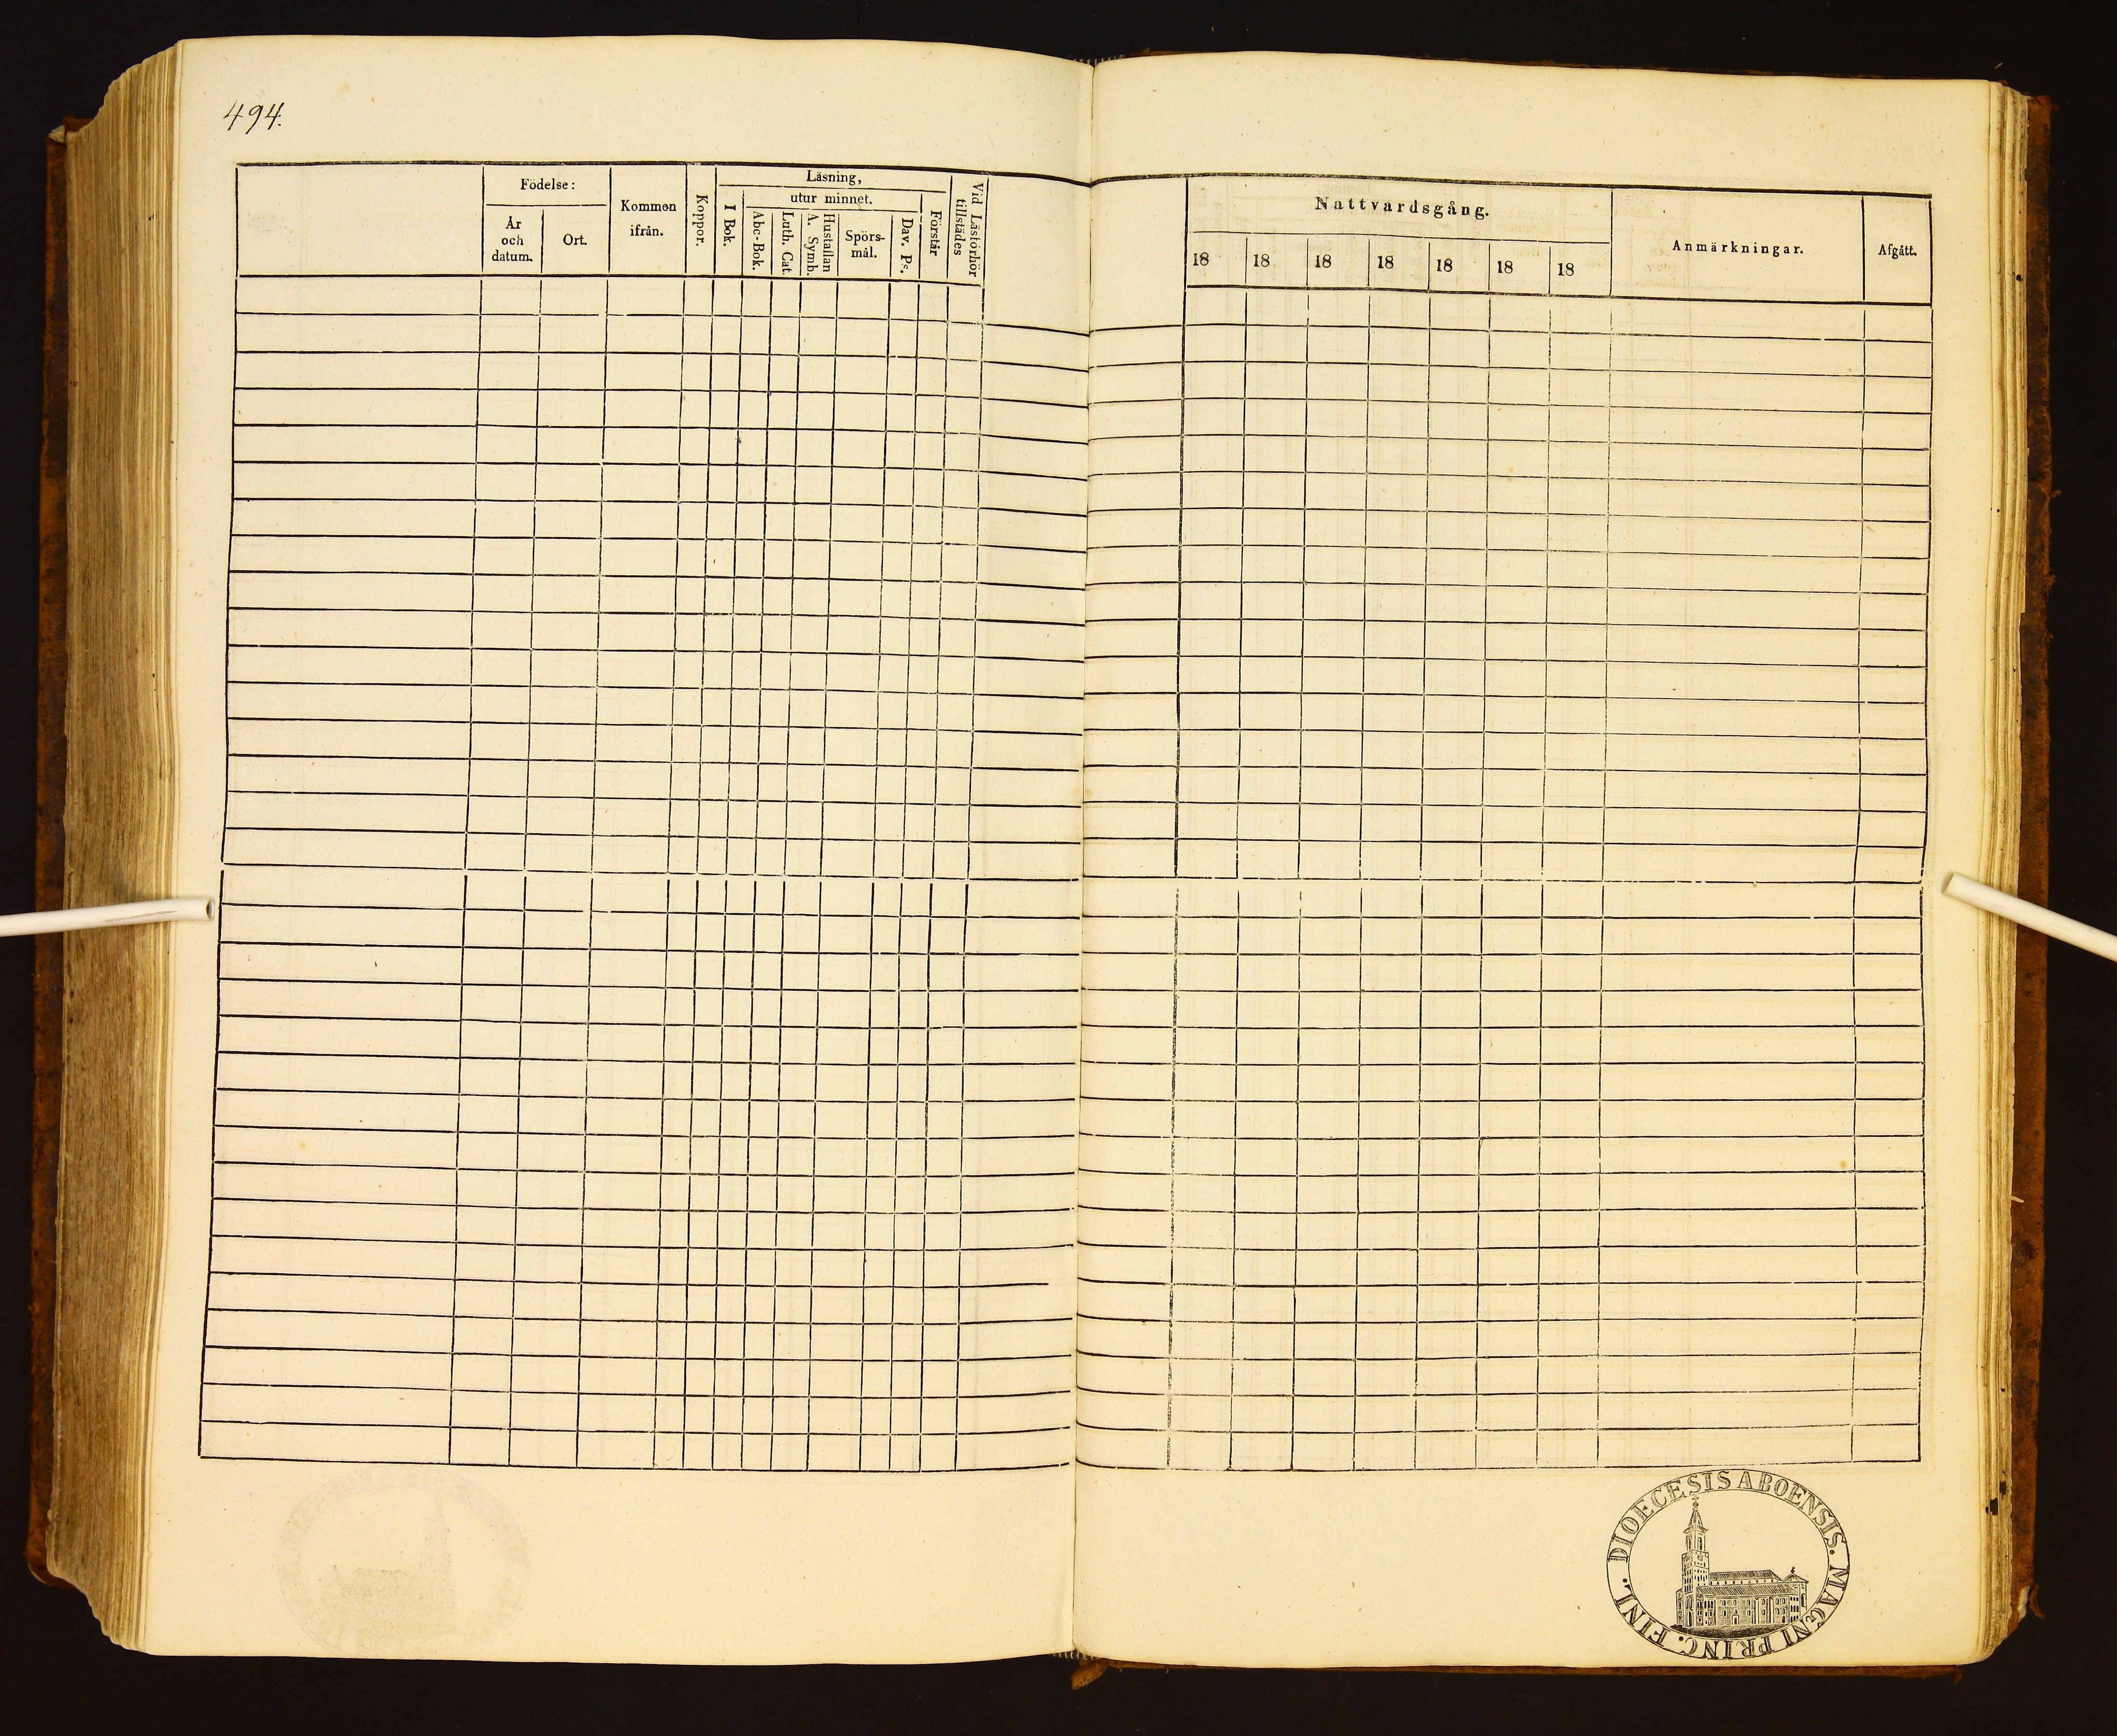 494.
Födelse:
År
och
datum.
Ort.
Kommen
ifrån.
Koppor.
Läsning,
I Bok.
utur minnet.
Abc-Bok.
Luth. Cat.
Hustaflan
A. Symb.
Spörs-
mål.
Dav. Ps.
Förstår
Vid Läsförhör
tillstädes
Nattvardsgång.
18 18 18 18 18 18 18
Anmärkningar.
Afgått.
DIOECESIS ABOENSIS. MAGNI PRINC. FINL.